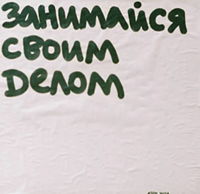 ЗАНИМАЙСЯ
СВОИМ
DЕЛОМ